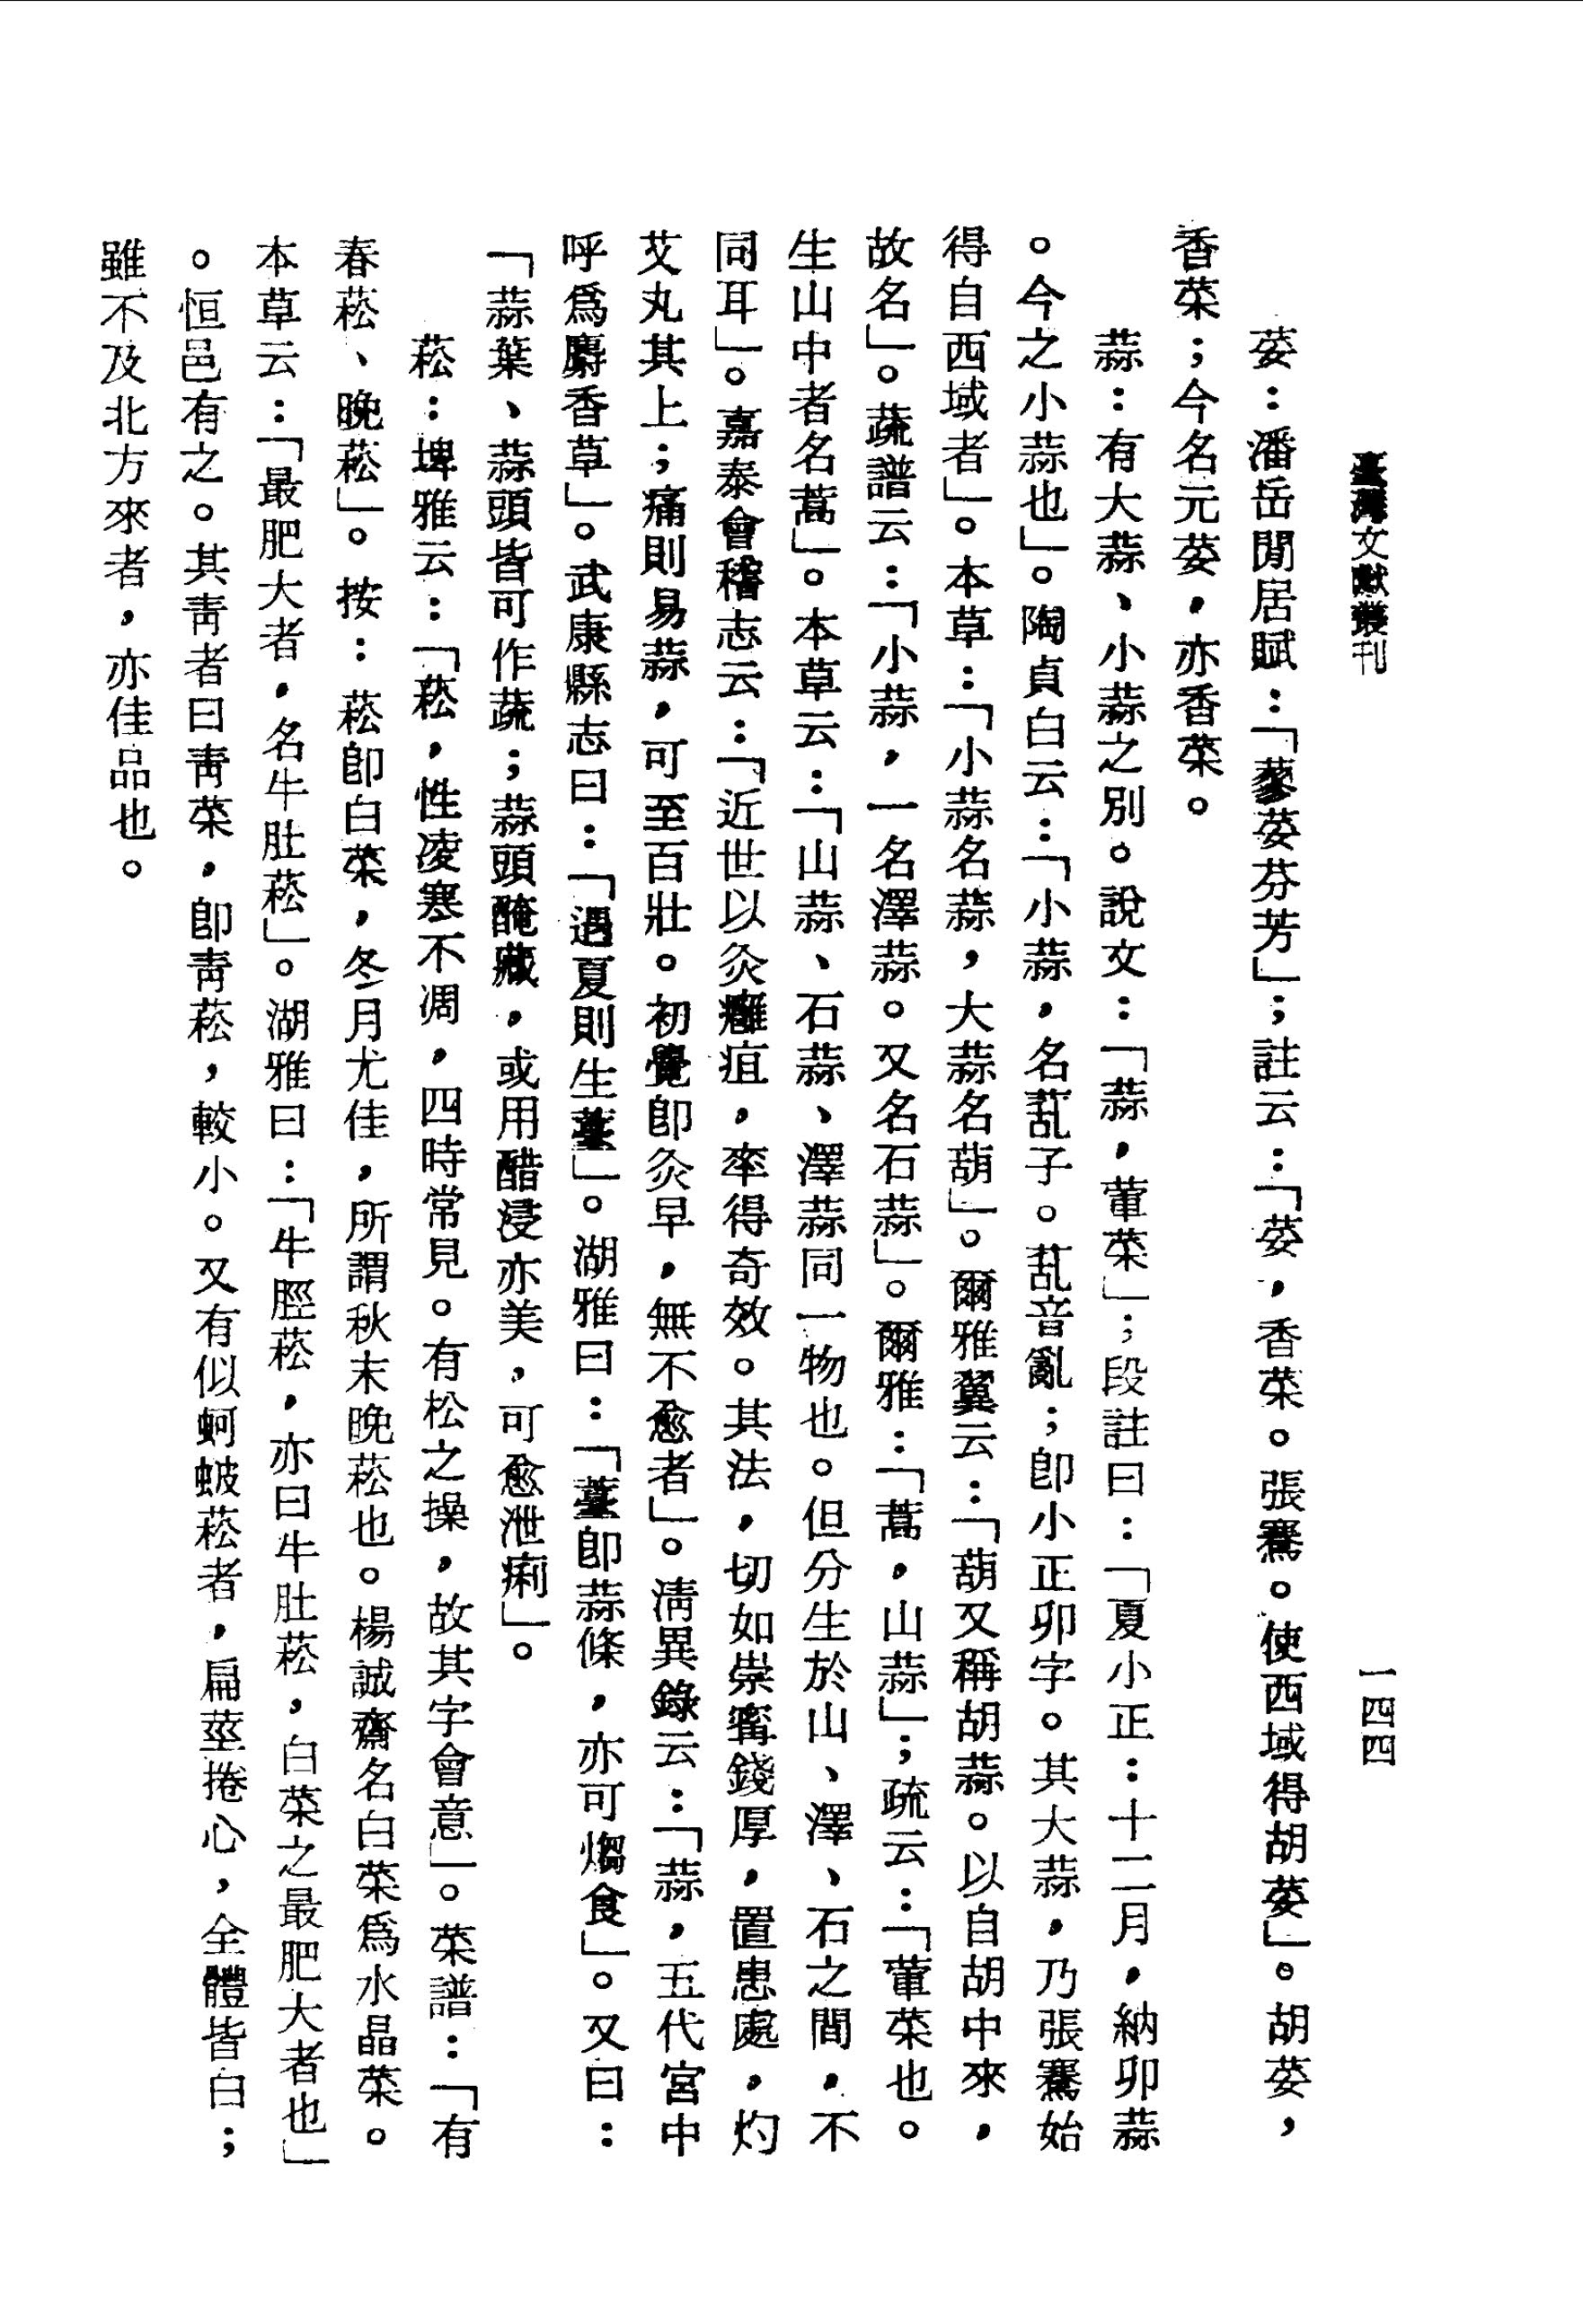 臺灣文獻叢刊
一四四
荽：潘岳閒居賦：「蓼荽芬芳」；註云：「荽，香菜。張騫。使西域得胡荽」。胡荽，
香菜；今名元荽，亦香菜。
蒜：有大蒜、小蒜之別。說文：「蒜，葷菜」；段註曰：「夏小正：十二月，納卯蒜
。今之小蒜也」。陶貞白云：「小蒜，名蓏子。蓏音亂；卽小正卯字。其大蒜，乃張騫始
得自西域者」。本草：「小蒜名蒜，大蒜名葫」。爾雅翼云：「葫又稱胡蒜。以自胡中來，
故名」。蔬譜云：「小蒜，一名澤蒜。又名石蒜」。爾雅：「蒚，山蒜」；疏云：「葷菜也。
生山中者名蒚」。本草云：「山蒜、石蒜、澤蒜同一物也。但分生於山、澤、石之間，不
同耳」。嘉泰會稽志云：「近世以灸癰疽，率得奇效。其法，切如崇寗錢厚，置患處，灼
艾丸其上；痛則易蒜，可至百壯。初覺卽灸早，無不愈者」。淸異錄云：「蒜，五代宮中
呼爲麝香草」。武康縣志曰：「過夏則生薹」。湖雅曰：「薹卽蒜條，亦可煼食」。又曰：
「蒜葉、蒜頭皆可作蔬；蒜頭醃藏，或用醋浸亦美，可愈泄痢」。
菘：埤雅云：「菘，性凌寒不凋，四時常見。有松之操，故其字會意」。菜譜：「有
春菘、晚菘」。按：菘卽白菜，冬月尤佳，所謂秋末晚菘也。楊誠齋名白菜爲水晶菜。
本草云：「最肥大者，名牛肚菘」。湖雅曰：「牛脛菘，亦曰牛肚菘，白菜之最肥大者也」
。恒邑有之。其靑者曰靑菜，卽靑菘，較小。又有似蚵蚾菘者，扁莖捲心，全體皆白；
雖不及北方來者，亦佳品也。